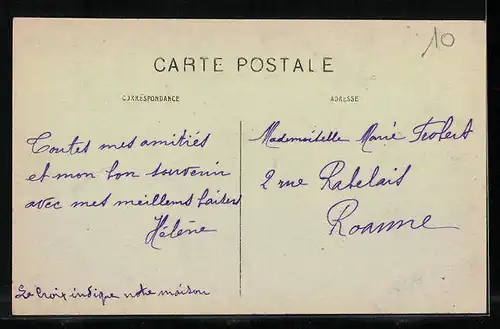 10
CARTE POSTALE
CORRESPONDANCE
ADRESSE
Toutes mes amitiés
et mon bon souvenir
avec mes meilleurs baisers
Hélène
La Croix indique notre maison
Mademoiselle Marie
2 rue Rabelais
Roanne